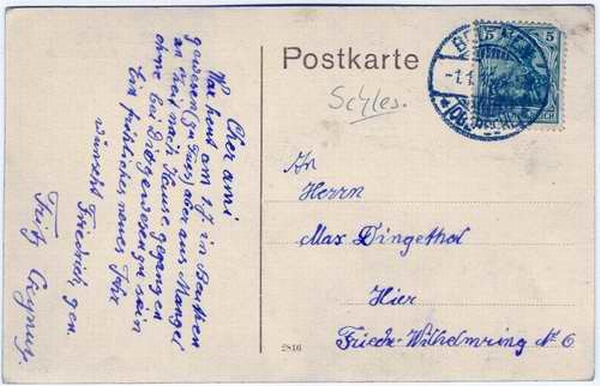 Cher ami
War heut am 1.I. in Beuthen
gewesen (zu Fuss) aber aus Mangel
an Zeit nach Hause gegangen
ohne bei Dir gewesen zu sein
Ein fröhliches neues Jahr
wünscht Friedrich, gen.
Fritz
Postkarte
Schles.
5 5
BEUTHEN
-1.1.
An
Herrn
Max Dingethal
Hier
Friedr-Wilhelmring № 6
2816